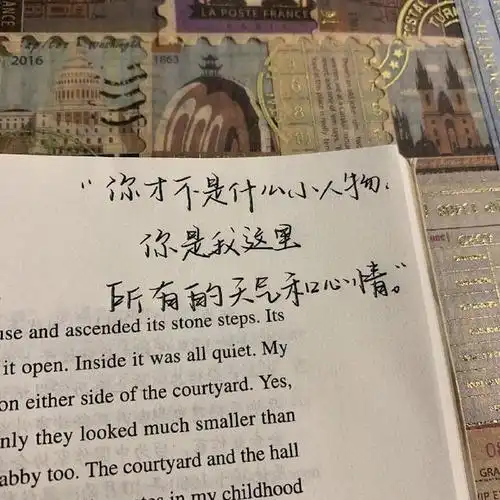 LA POSTE FRANCE
PARIS
2016
1863
“你才不是什么小人物,
你是我这里
所有的天气和心情。”
use and ascended its stone steps. Its
it open. Inside it was all quiet. My
on either side of the courtyard. Yes,
nly they looked much smaller than
abby too. The courtyard and the hall
in my childhood